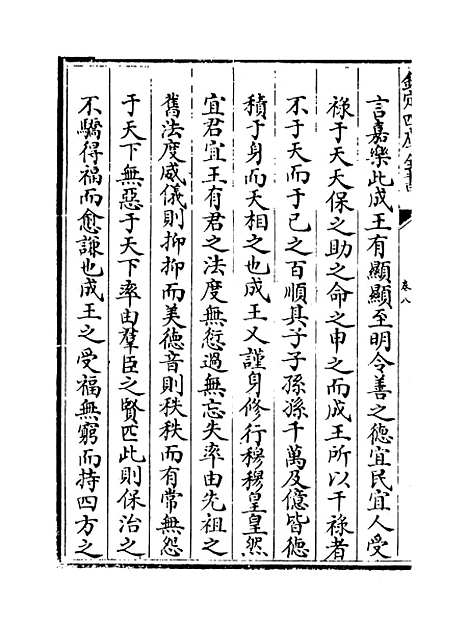 欽定四庫全書
卷八
言嘉樂此成王有顯顯至明令善之德宜民宜人受
祿于天天保之助之命之申之而成王所以干祿者
不于天而于已之百順具子子孫孫千萬及億皆德
積于身而天相之也成王又謹身修行穆穆皇皇然
宜君宜王有君之法度無愆過無忘失率由先祖之
舊法度威儀則抑抑而美德音則秩秩而有常無怨
于天下無惡于天下率由羣臣之賢匹此則保治之
不驕得福而愈謙也成王之受福無窮而持四方之